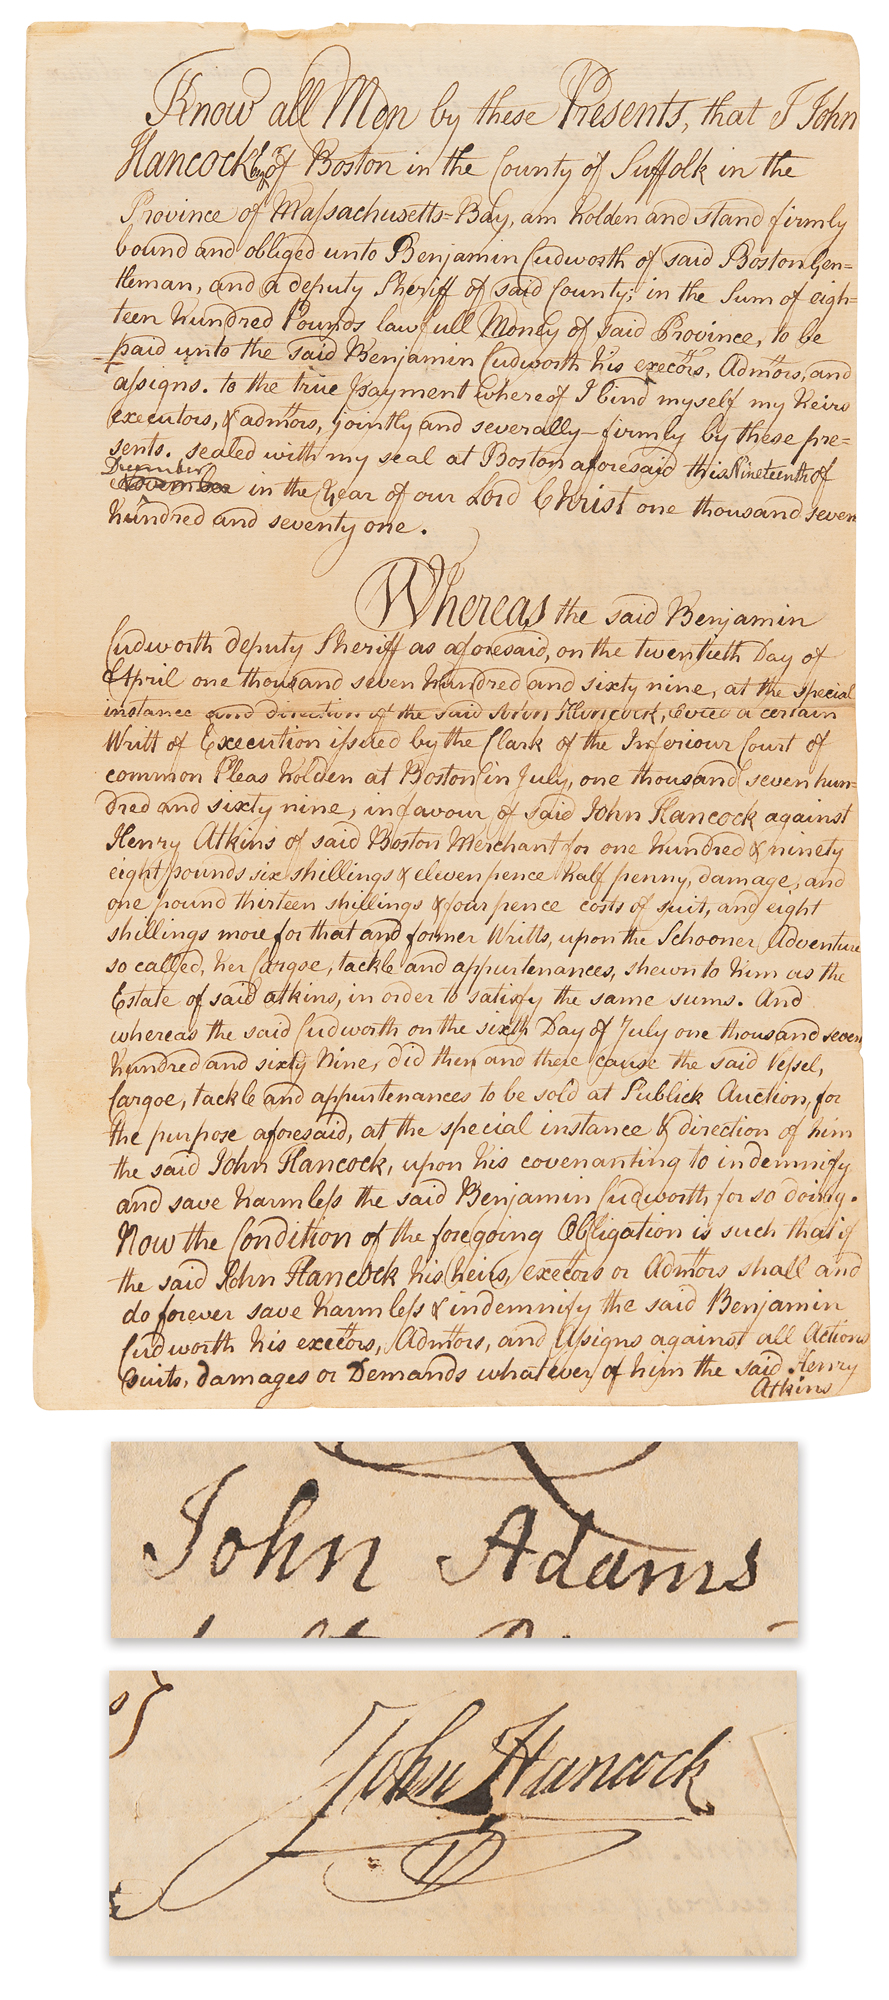 Know all Men by these Presents, that I John
Hancock Esqr of Boston in the County of Suffolk in the
Province of Massachusetts-Bay, am holden and stand firmly
bound and obliged unto Benjamin Cudworth of said Boston Gen=
tleman, and a deputy Sheriff of said County; in the Sum of eigh=
teen hundred Pounds lawfull Money of said Province, to be
paid unto the said Benjamin Cudworth his exectors, Admtors, and
assigns. to the true payment whereof I bind myself my heirs
executors, & admtors, jointly and severally firmly by these pre=
sents. sealed with my seal at Boston aforesaid this Nineteenth of
December
November in the Year of our Lord Christ one thousand seven
hundred and seventy one.
Whereas the said Benjamin
Cudworth deputy Sheriff as aforesaid, on the twentieth Day of
April one thousand seven hundred and sixty nine, at the special
instance and direction of the said John Hancock, levied a certain
Writt of Execution issued by the Clark of the Inferiour Court of
common Pleas holden at Boston in July, one thousand seven hun=
dred and sixty nine, in favour of said John Hancock against
Henry Atkins of said Boston Merchant for one hundred & ninety
eight pounds six shillings & eleven pence half penny, damage, and
one pound thirteen shillings & four pence costs of suit, and eight
shillings more for that and former Writts, upon the Schooner Adventure
so called, her Cargoe, tackle and appurtenances, shewn to him as the
Estate of said atkins, in order to satisfy the same sums. And
whereas the said Cudworth on the sixth Day of July one thousand seven
hundred and sixty Nine, did then and there cause the said Vessel,
Cargoe, tackle and appurtenances to be sold at Publick Auction, for
the purpose aforesaid, at the special instance & direction of him
the said John Hancock, upon his covenanting to indemnify
and save harmless the said Benjamin Cudworth for so doing.
Now the Condition of the foregoing Obligation is such that if
the said John Hancock his heirs, exectors or Admtors shall and
do forever save harmless & indemnify the said Benjamin
Cudworth his exectors, Admtors, and Assigns against all Actions
Suits, damages or Demands whatever of him the said Henry
Atkins
John Adams
John Hancock